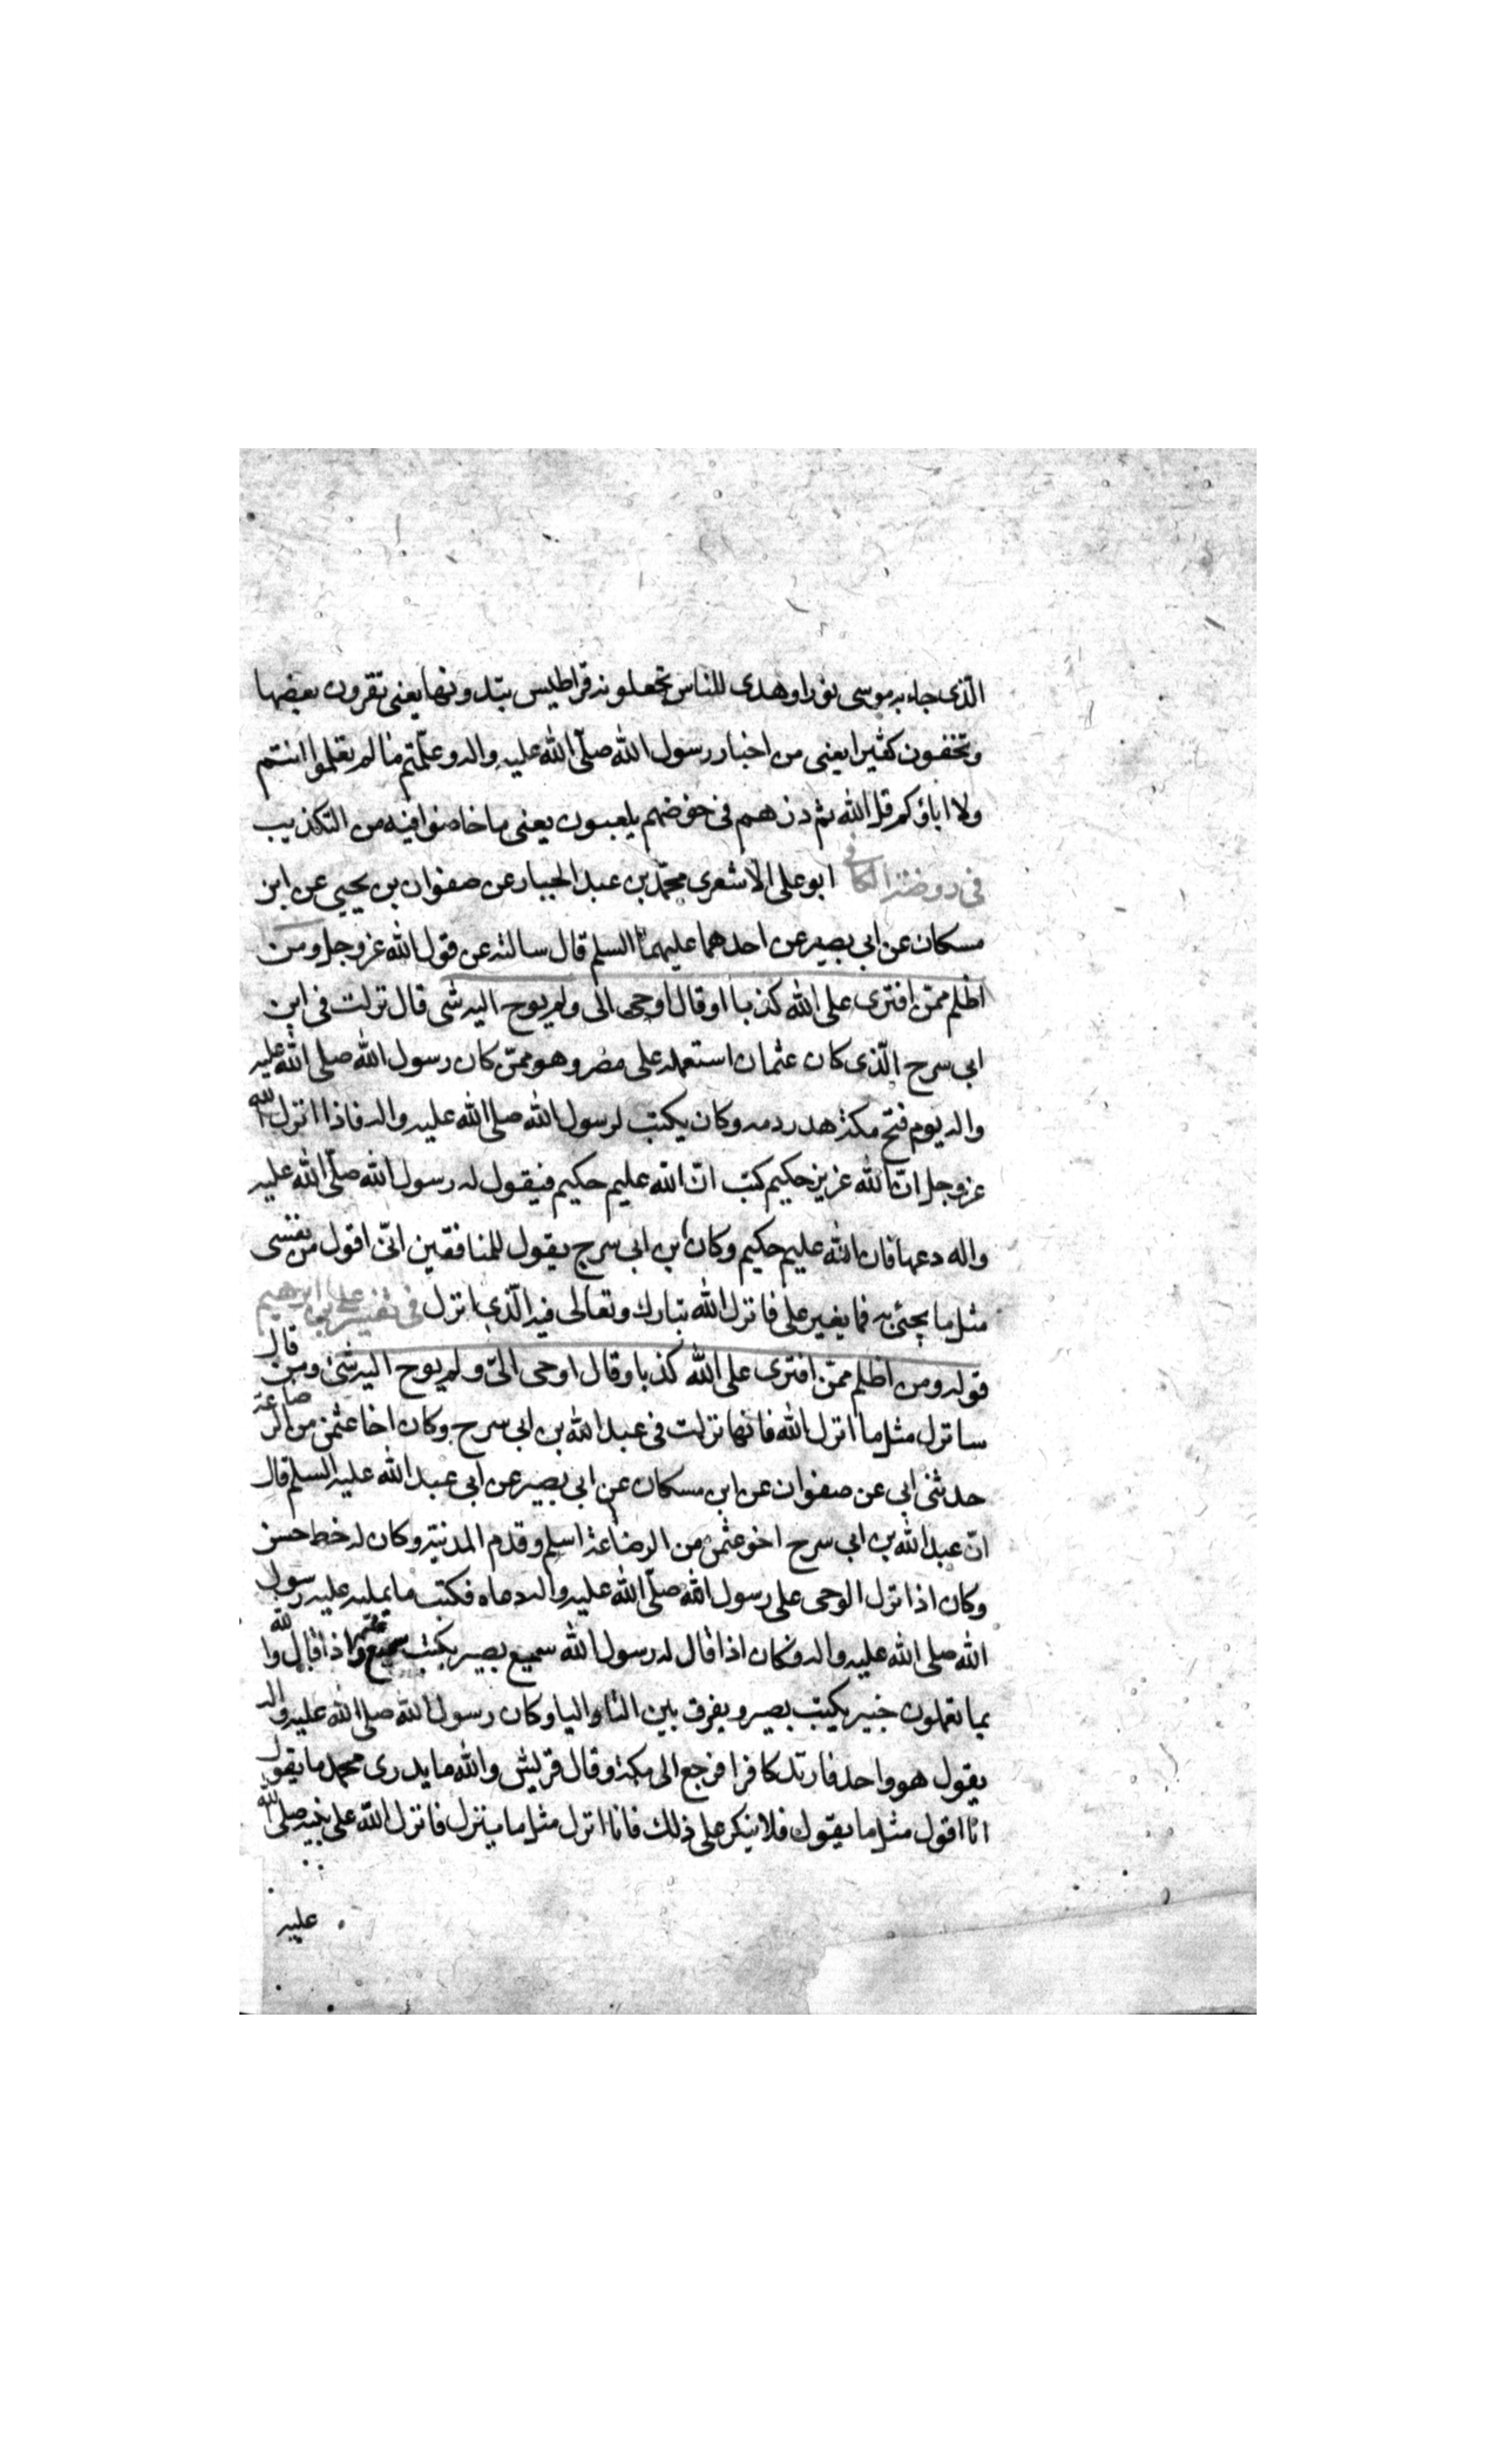 الّذى جاء به موسى نورا وهدى للناس تجعلونه قراطيس تبدونها يعنى تقرون ببعضها
وتخفون كثيرا يعنى من اخبار رسول الله صلّى الله عليه واله وعلّمتم ما لم تعلموا انتم
ولا اباؤكم قل الله ثم ذرهم فى خوضهم يلعبون يعنى ما خاضوا فيه من التكذيب
فى روضة الكافى ابو على الاشعرى محمّد بن عبد الجبار عن صفوان بن يحيى عن ابن
مسكان عن ابى بصير عن احدهما عليهما السلم قال سالته عن قول الله عز وجل ومن
اظلم ممّن افترى على الله كذبا او قال اوحى الى ولم يوح اليه شى قال نزلت فى ابن
ابى سرح الّذى كان عثمان استعمله على مصر وهو ممّن كان رسول الله صلى الله عليه
واله يوم فتح مكة هدر دمه وكان يكتب لرسول الله صلى الله عليه واله فاذا انزل الله
عز وجل انّ الله عزيز حكيم كتب انّ الله عليم حكيم فيقول له رسول الله صلّى الله عليه
واله دعها فان الله عليم حكيم وكان ابن ابى سرح يقول للمنافقين انّى اقول من نفسى
مثل ما يجئ به فما يغير على فانزل الله تبارك وتعالى فيه الّذى انزل فى تفسير على بن ابرهيم
قوله ومن اظلم ممّن افترى على الله كذبا وقال اوحى الىّ ولم يوح اليه شئ ومن قال
سانزل مثل ما انزل الله فانها نزلت فى عبد الله بن ابى سرح وكان اخا عثمن من الرضاعة
حدثنى ابى عن صفوان عن ابن مسكان عن ابى بصير عن ابى عبد الله عليه السلم قال
انّ عبد الله بن ابى سرح اخو عثمن من الرضاعة اسلم وقدم المدنية وكان له خط حسن
وكان اذا نزل الوحى على رسول الله صلّى الله عليه واله دعاه فكتب ما يمليه عليه رسول
الله صلى الله عليه واله وكان اذا قال له رسول الله سميع بصير يكتب سميع عليم واذا قال والله
بما تعملون خبير يكتب بصير ويفرق بين التا واليا وكان رسول الله صلى الله عليه واله
يقول هو واحد فارتد كافرا فرجع الى مكة وقال قريش والله ما يدرى محمد ما يقول
انا اقول مثل ما يقول فلا ينكر على ذلك فانا انزل مثل ما ينزل فانزل الله على نبيه صلى الله
عليه